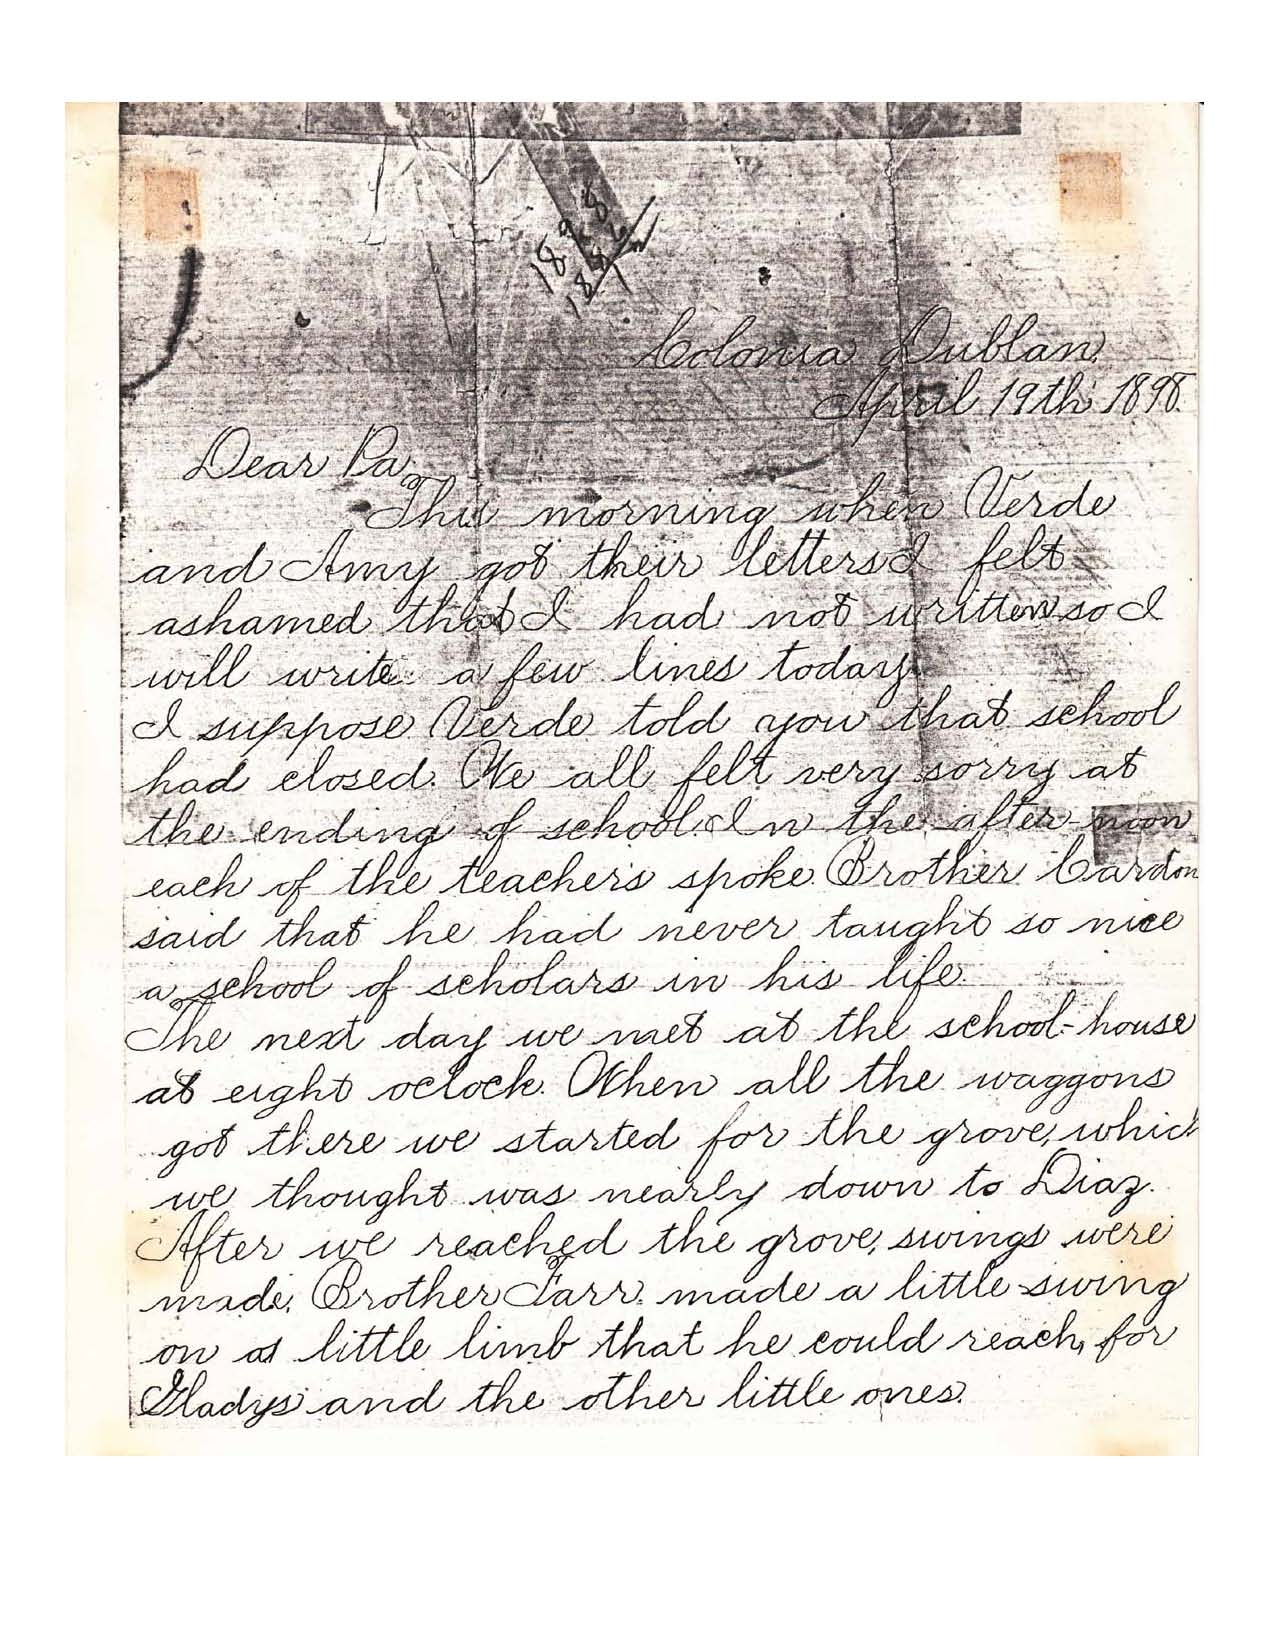 1898
1882
Colonia Dublan,
April 19th 1898.
Dear Pa,
This morning when Verde
and Amy got their letters I felt
ashamed that I had not written so I
will write a few lines today.
I suppose Verde told you that school
had closed. We all felt very sorry at
the ending of school. In the after-noon
each of the teachers spoke. Brother Cardon
said that he had never taught so nice
a school of scholars in his life.
The next day we met at the school-house
at eight oclock. When all the waggons
got there we started for the grove, which
we thought was nearly down to Diaz.
After we reached the grove, swings were
made. Brother Farr made a little swing
on a little limb that he could reach, for
Gladys and the other little ones.